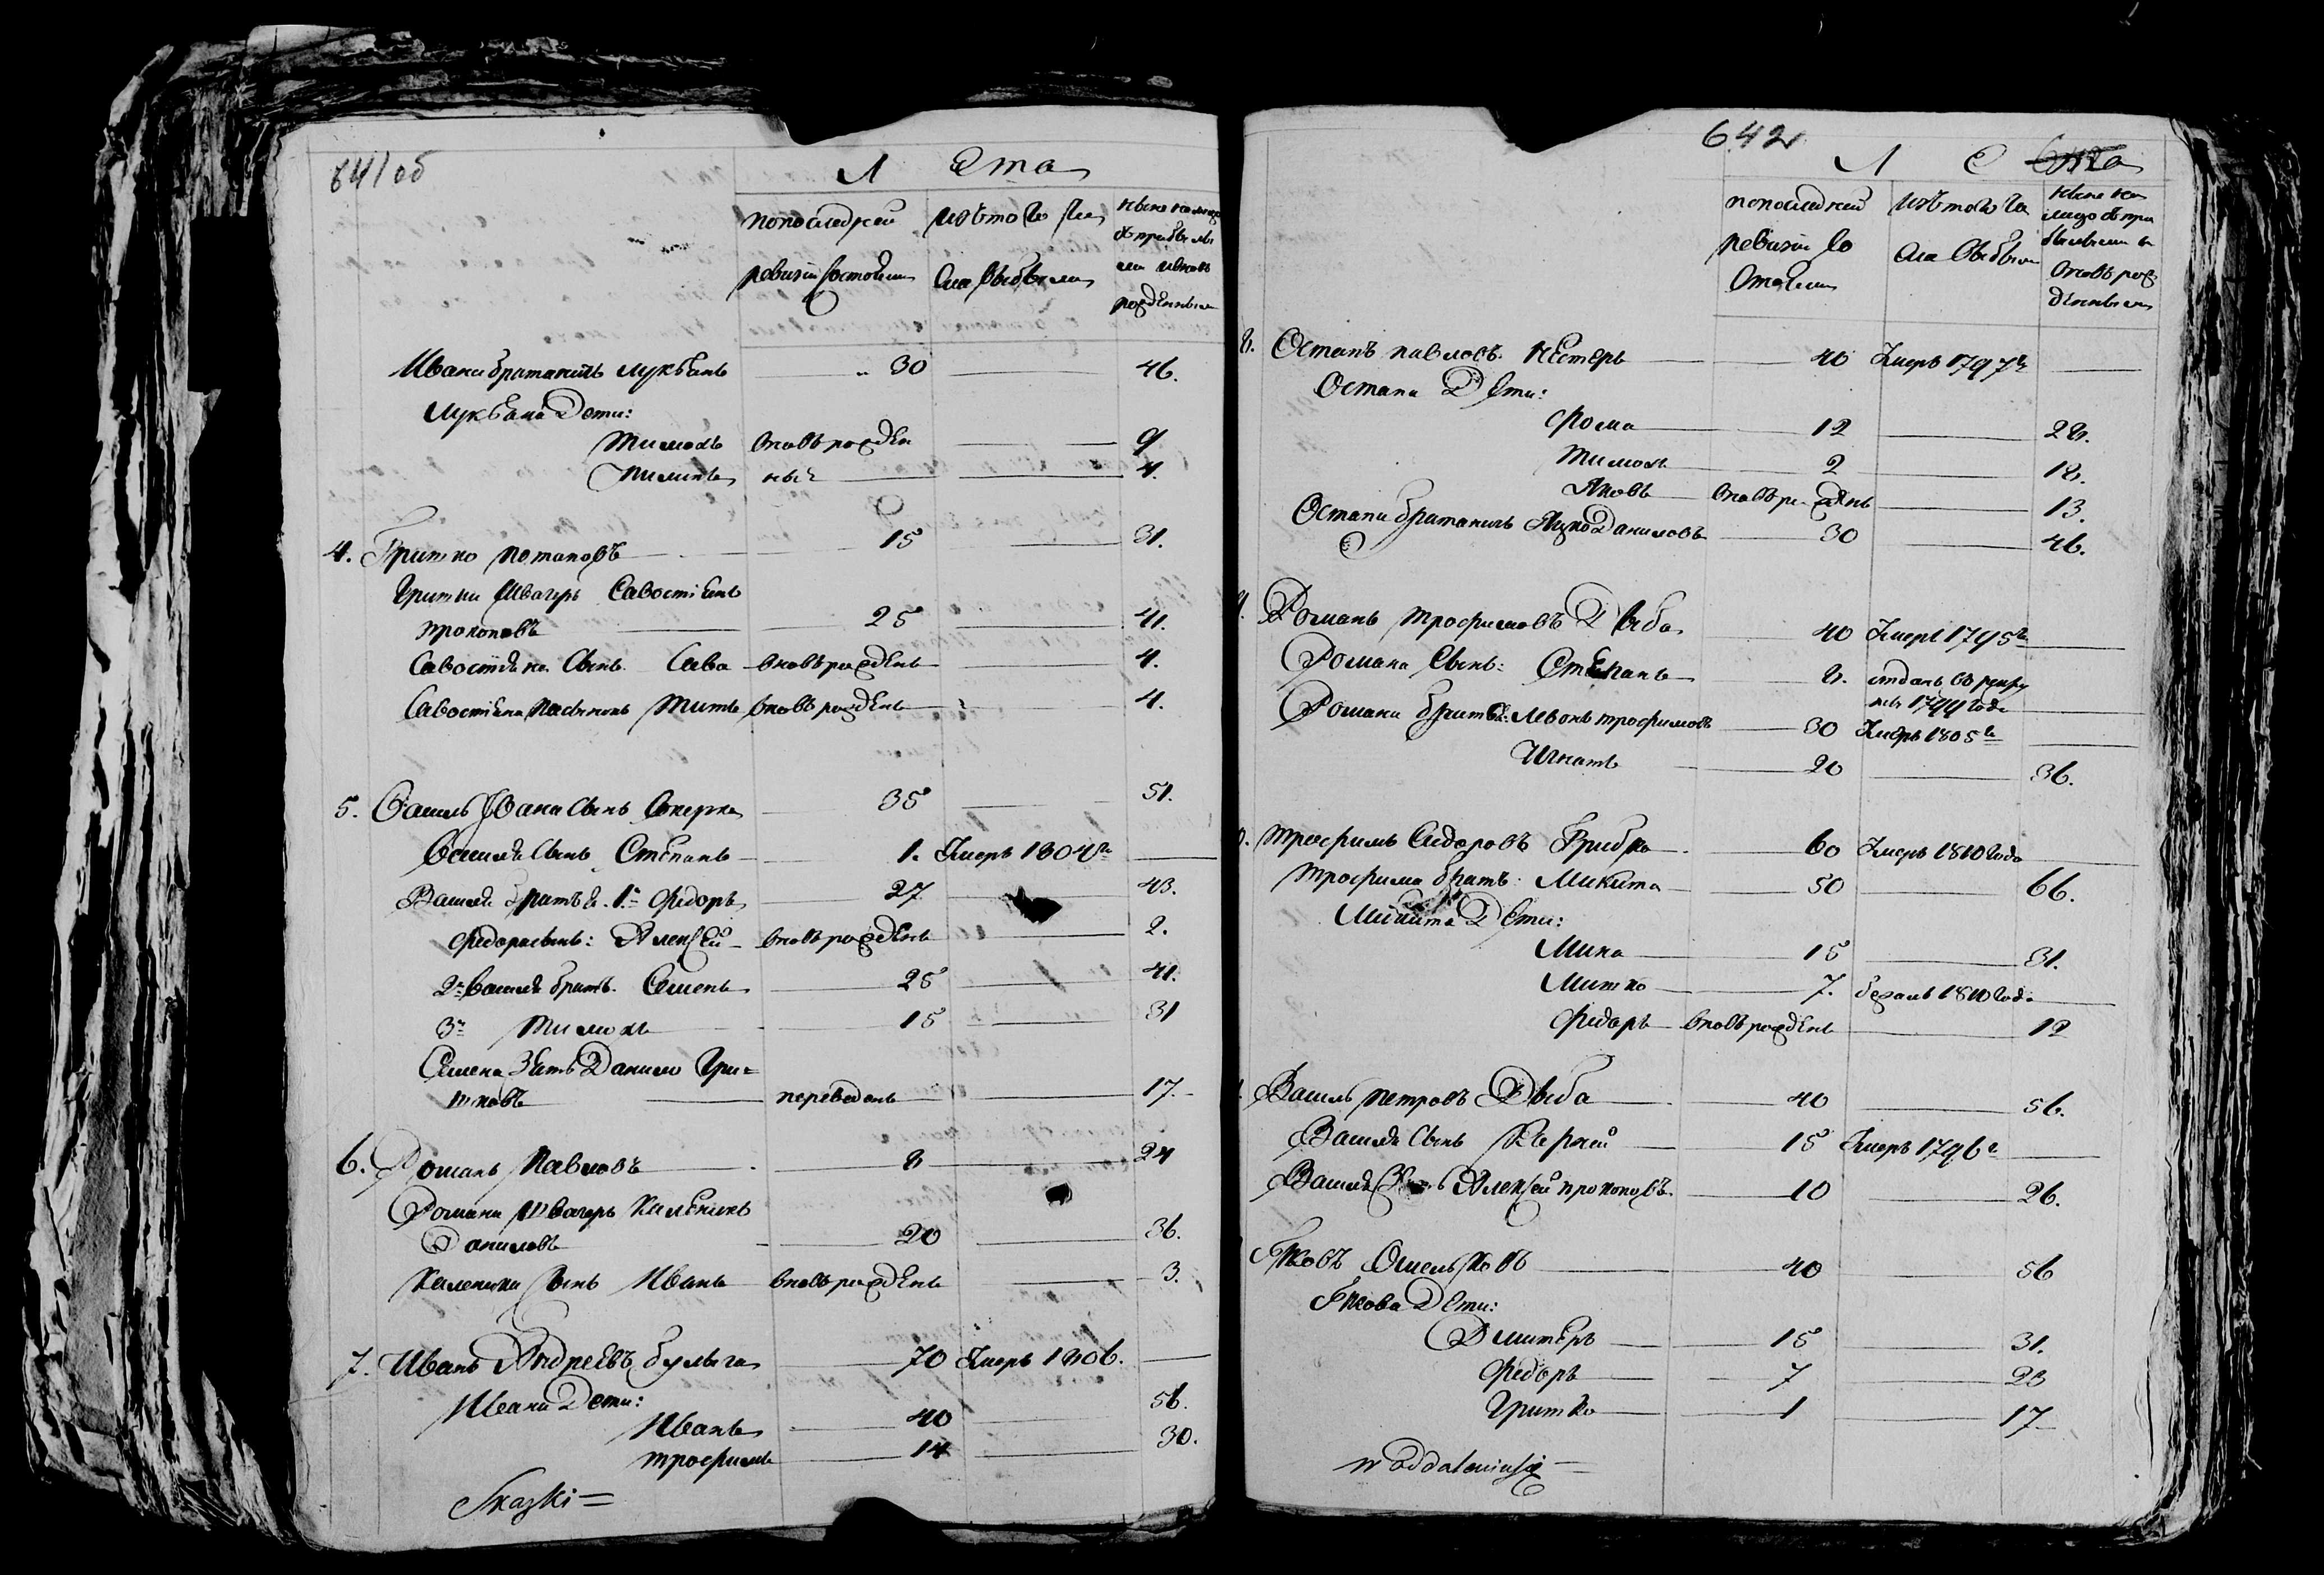 641 об
Л Ета
попоследней
ревизіи состояли
изътого числа выбыли
ныне налицо
съприбылыми
и вновь
рожденными
Ивана братаничь Лукьянъ 30 46.
Лукьяна Дети:
Тимохъ вновь рожден 9
Пилипъ ный 4.
4. Гришко Потаповъ 15 31.
Гришки Швагеръ Савостіянъ
Прокоповъ 25 41.
Савостіяна Сынъ Сава вновь рожденъ 4.
Савостіяна Пасынокъ Титъ вновь рожденъ 4.
5. Василь Ивана Сынъ 35 51.
Василя Сынъ Степанъ 1. Умеръ 1804 г
Василя Братья. 1й Федоръ 27 43.
Федора сынъ: Алексей вновь рожденъ 2.
2й Василя братъ Семенъ 25 41.
3й Тимохъ 15 31
Семена Зять Данило Гри=
шковъ переведенъ 17.
6. Романъ Павловъ 8 24
Романа Швагеръ Каленикъ
Даниловъ 20 36.
Каленика Сынъ Иванъ вновь рожденъ 3.
7. Иванъ Андреевъ Булыга 70 Умеръ 1806.
Ивана Дети:
Иванъ 40 56.
Трофимъ 14 30.
Skazki =
642
Л Ета
попоследней
ревизіи со
стояли
изътого чи
сла выбыли
ныне на
лицо съ при
былыми и
вновь рож
денными
8. Остапъ Павловъ Нестеръ 40 Умеръ 1797 г
Остапа Дети:
Фома 12 28.
Тимохъ 2 18.
Яковъ вновь рожденъ 13.
Остапа братаничь Яцко Даниловъ 30 46.
9. Романъ Трофимовъ Дыба 40 Умеръ 1795 г
Романа Сынъ: Степанъ 8. отданъ въ рекру
ты 1799 Года
Романа братья: Левонъ Трофимовъ 30 Умеръ 1805 г
Игнатъ 20 36.
Трофимъ Сидоровъ Грибко 60 Умеръ 1810 Года
Трофима братъ: Микита 50 66.
Микита Дети:
Мина 15 31.
Митко 7. бежалъ 1810 Года
Федоръ вновь рожденъ 12
Василь Петровъ Дыба 40 56.
Василя Сынъ Керней 15 Умеръ 1796 г
Василя Алексей Прокоповъ 10 26.
Яковъ Омельковъ 40 56
Якова Дети:
Дмитеръ 15 31.
Федоръ 7 23
Гришко 1 17